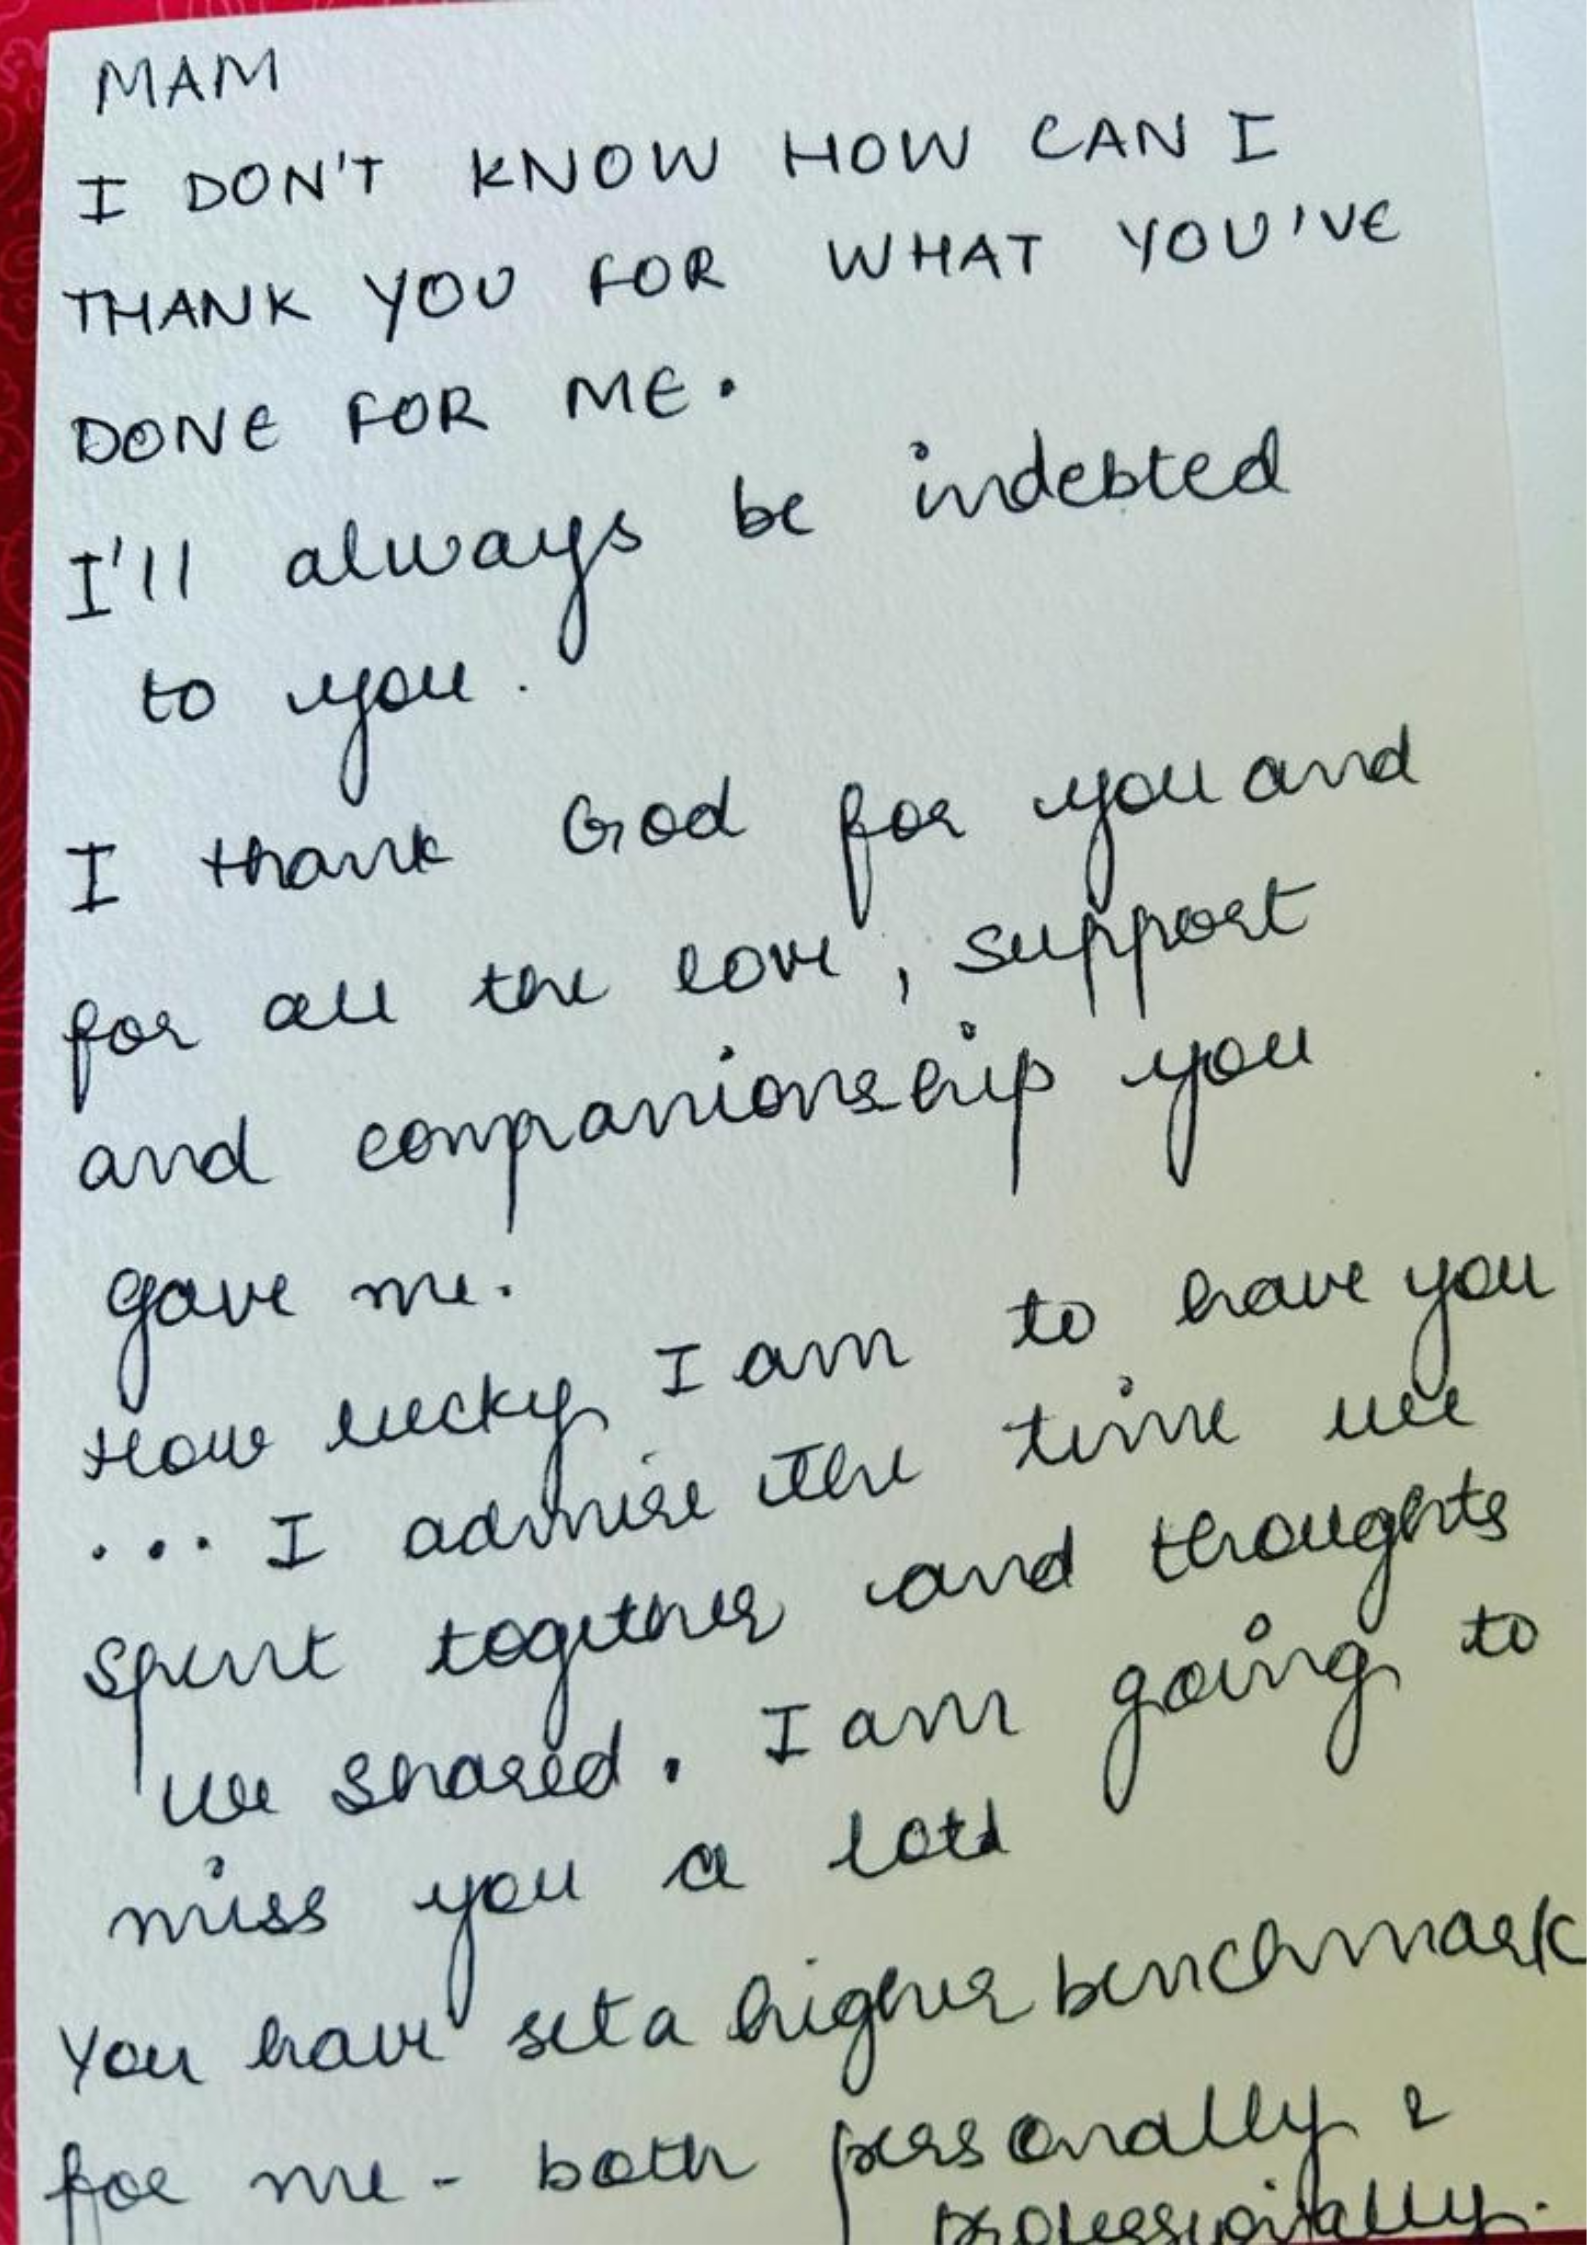 MAM
I DON'T KNOW HOW CAN I
THANK YOU FOR WHAT YOU'VE
DONE FOR ME.
I'll always be indebted
to you.
I thank God for you and
for all the love, support
and companionship you
gave me.
How lucky I am to have you
... I admire the time we
spent together and thoughts
we shared. I am going to
miss you a lot
You have set a higher benchmark
for me - both personally &
professionally.